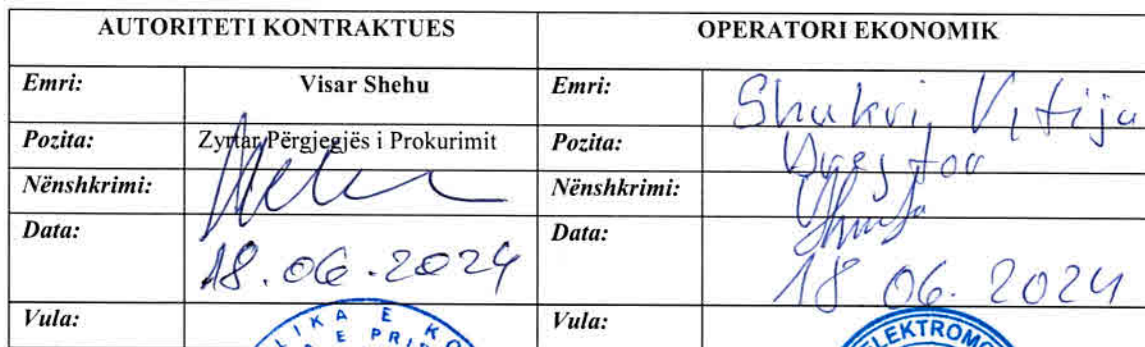 AUTORITETI KONTRAKTUES OPERATORI EKONOMIK
Emri: Visar Shehu Emri: Shukri Vitija
Pozita: Zyrtar Përgjegjës i Prokurimit Pozita: Direktor
Nënshkrimi: Nënshkrimi:
Data: 18.06.2024 Data: 18 06. 2024
Vula: Vula: